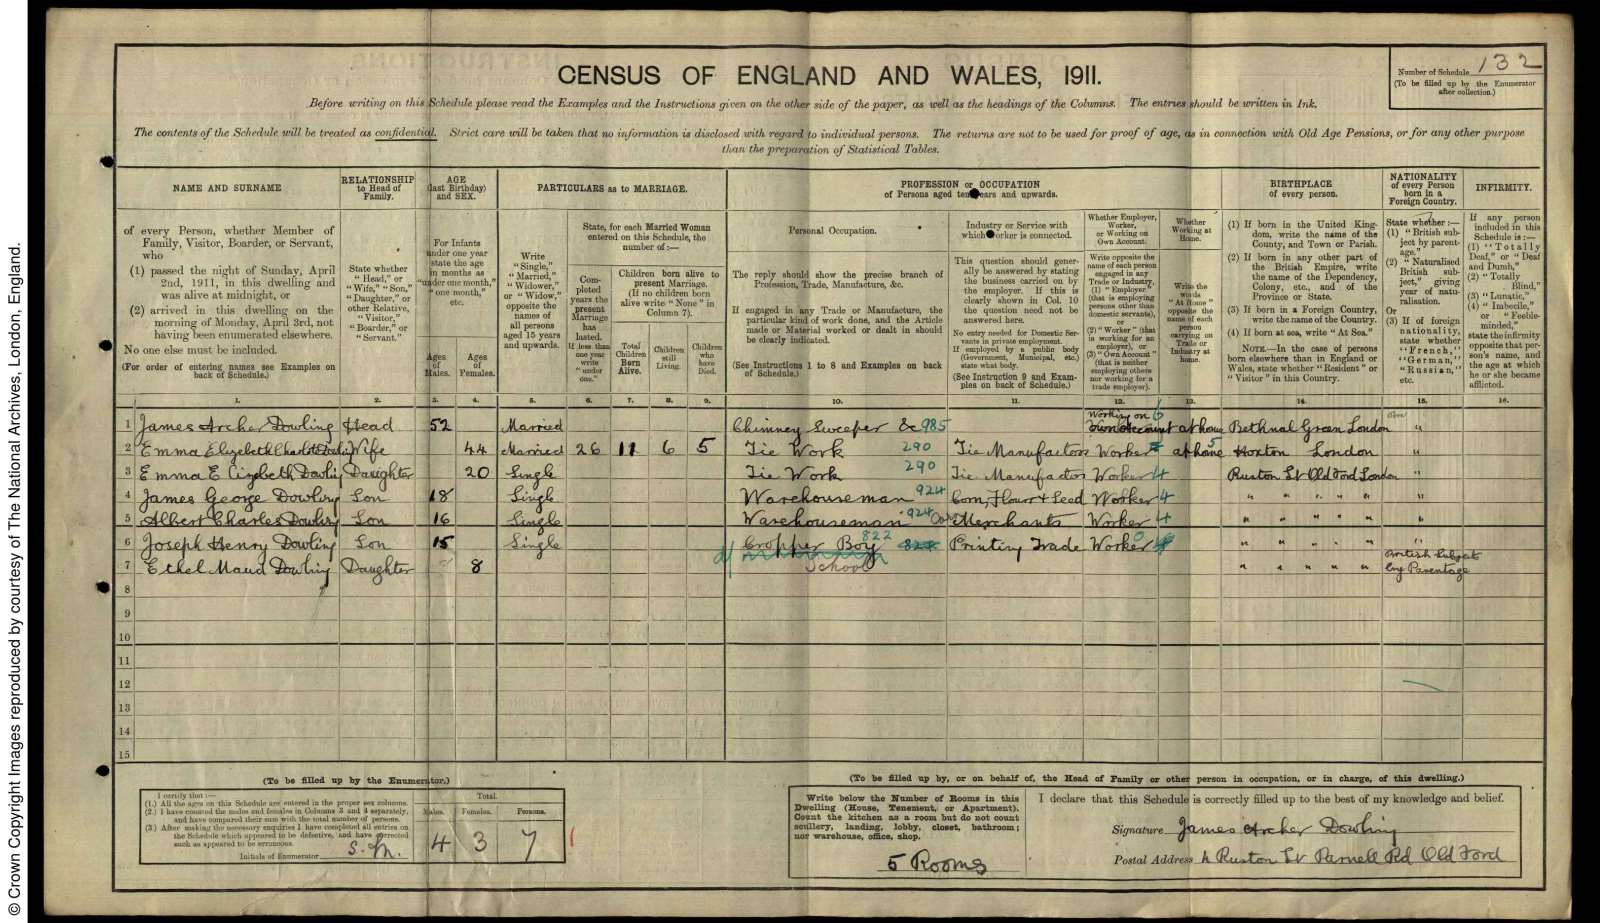 © Crown Copyright Images reproduced by courtesy of The National Archives, London, England.
CENSUS OF ENGLAND AND WALES, 1911.
Number of Schedule 132
(To be filled up by the Enumerator after collection.)
Before writing on this Schedule please read the Examples and the Instructions given on the other side of the paper, as well as the headings of the Columns. The entries should be written in Ink.
The contents of the Schedule will be treated as confidential. Strict care will be taken that no information is disclosed with regard to individual persons. The returns are not to be used for proof of age, as in connection with Old Age Pensions, or for any other purpose
than the preparation of Statistical Tables.
NAME AND SURNAME
RELATIONSHIP to Head of Family.
AGE (last Birthday) and SEX.
PARTICULARS as to MARRIAGE.
PROFESSION or OCCUPATION
of Persons aged ten years and upwards.
BIRTHPLACE of every person.
NATIONALITY of every Person born in a Foreign Country.
INFIRMITY.
of every Person, whether Member of
Family, Visitor, Boarder, or Servant,
who
(1) passed the night of Sunday, April
2nd, 1911, in this dwelling and
was alive at midnight, or
(2) arrived in this dwelling on the
morning of Monday, April 3rd, not
having been enumerated elsewhere.
No one else must be included.
(For order of entering names see Examples on
back of Schedule.)
State whether
"Head," or
"Wife," "Son,"
"Daughter," or
other Relative,
"Visitor,"
"Boarder," or
"Servant."
For Infants
under one year
state the age
in months as
"under one month,"
"one month,"
etc.
Ages of Males.
Ages of Females.
Write
"Single,"
"Married,"
"Widower,"
or "Widow,"
opposite the
names of
all persons
aged 15 years
and upwards.
State, for each Married Woman
entered on this Schedule, the
number of:—
Completed years the present Marriage has lasted. If less than one year write "under one."
Children born alive to
present Marriage.
(If no children born
alive write "None" in
Column 7).
Total Children Born Alive.
Children still Living.
Children who have Died.
Personal Occupation.
The reply should show the precise branch of
Profession, Trade, Manufacture, &c.
If engaged in any Trade or Manufacture, the
particular kind of work done, and the Article
made or Material worked or dealt in should
be clearly indicated.
(See Instructions 1 to 8 and Examples on back
of Schedule.)
Industry or Service with
which worker is connected.
This question should generally be answered by stating
the business carried on by
the employer. If this is
clearly shown in Col. 10
the question need not be
answered here.
No entry needed for Domestic Servants in private employment.
If employed by a public body
(Government, Municipal, etc.)
state what body.
(See Instruction 9 and Examples on back of Schedule.)
Whether Employer,
Worker,
or Working on
Own Account.
Write opposite the
name of each person
engaged in any
Trade or Industry,
(1) "Employer"
(that is employing
persons other than
domestic servants),
or
(2) "Worker" (that
is working for an
employer), or
(3) "Own Account"
(that is neither
employing others
nor working for a
trade employer).
Whether
Working at
Home.
Write the
words
"At Home"
opposite the
name of each
person
carrying on
Trade or
Industry at
home.
(1) If born in the United Kingdom, write the name of the
County, and Town or Parish.
(2) If born in any other part of
the British Empire, write
the name of the Dependency,
Colony, etc., and of the
Province or State.
(3) If born in a Foreign Country,
write the name of the Country.
(4) If born at sea, write "At Sea."
NOTE.—In the case of persons
born elsewhere than in England or
Wales, state whether "Resident" or
"Visitor" in this Country.
State whether:—
(1) "British subject by parentage,"
(2) "Naturalised British subject," giving year of naturalisation.
Or
(3) If of foreign nationality, state whether "French," "German," "Russian," etc.
If any person
included in this
Schedule is:—
(1) "Totally
Deaf," or "Deaf
and Dumb,"
(2) "Totally
Blind,"
(3) "Lunatic,"
(4) "Imbecile,"
or "Feeble-
minded,"
state the infirmity
opposite that person's name, and
the age at which
he or she became
afflicted.
1. 2. 3. 4. 5. 6. 7. 8. 9. 10. 11. 12. 13. 14. 15. 16.
1 James Archer Dowling Head 52 Married Chimney Sweeper &c 985 Working on Own Account 6 at home Bethnal Green London "
2 Emma Elizabeth Charlotte Dowling Wife 44 Married 26 11 6 5 Tie Work 290 Tie Manufactors Worker at home 5 Hoxton London "
3 Emma E Elizebeth Dowling Daughter 20 Single Tie Work 290 Tie Manufactor Worker 4 Ruston St Old Ford London "
4 James George Dowling Son 18 Single Warehouseman 924 Corn, Flour & Seed Worker 4 " " " " " "
5 Albert Charles Dowling Son 16 Single Warehouseman 924 Merchants Worker 4 " " " " " "
6 Joseph Henry Dowling Son 15 Single Cropper Boy 822 Printing Trade Worker 0 " " " " "
7 Ethel Maud Dowling Daughter 8 School " " " " " British Subject by Parentage
8
9
10
11
12
13
14
15
(To be filled up by the Enumerator.)
I certify that:—
(1.) All the ages on this Schedule are entered in the proper sex columns.
(2.) I have counted the males and females in Columns 3 and 4 separately,
and have compared their sum with the total number of persons.
(3.) After making the necessary enquiries I have completed all entries on
the Schedule which appeared to be defective, and have corrected
such as appeared to be erroneous.
Initials of Enumerator S.M.
Total.
Males. Females. Persons.
4 3 7
(To be filled up by, or on behalf of, the Head of Family or other person in occupation, or in charge, of this dwelling.)
Write below the Number of Rooms in this
Dwelling (House, Tenement, or Apartment).
Count the kitchen as a room but do not count
scullery, landing, lobby, closet, bathroom;
nor warehouse, office, shop.
5 Rooms
I declare that this Schedule is correctly filled up to the best of my knowledge and belief.
Signature James Archer Dowling
Postal Address 4 Ruston St Parnell Rd Old Ford